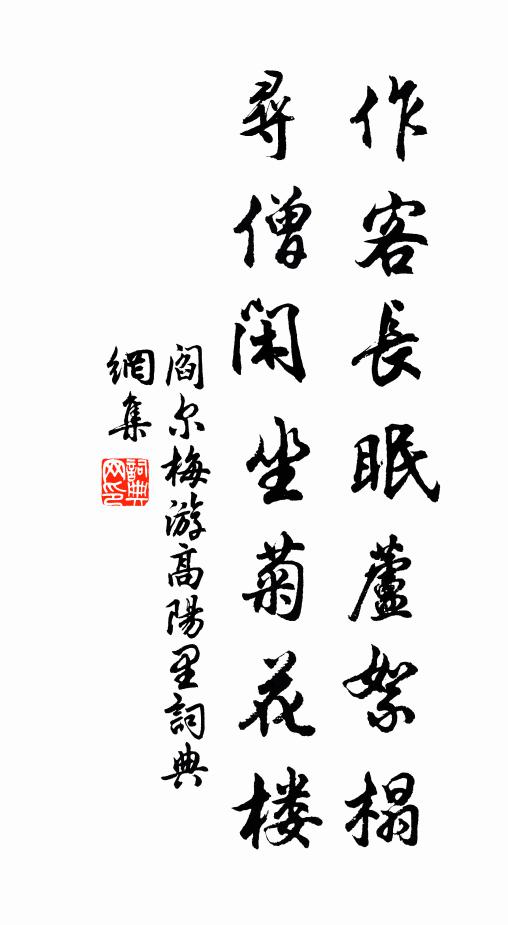 作客長眠蘆絮榻
尋僧閑坐菊花楼
阎尔梅游高陽里詞典
網集
詞典網印